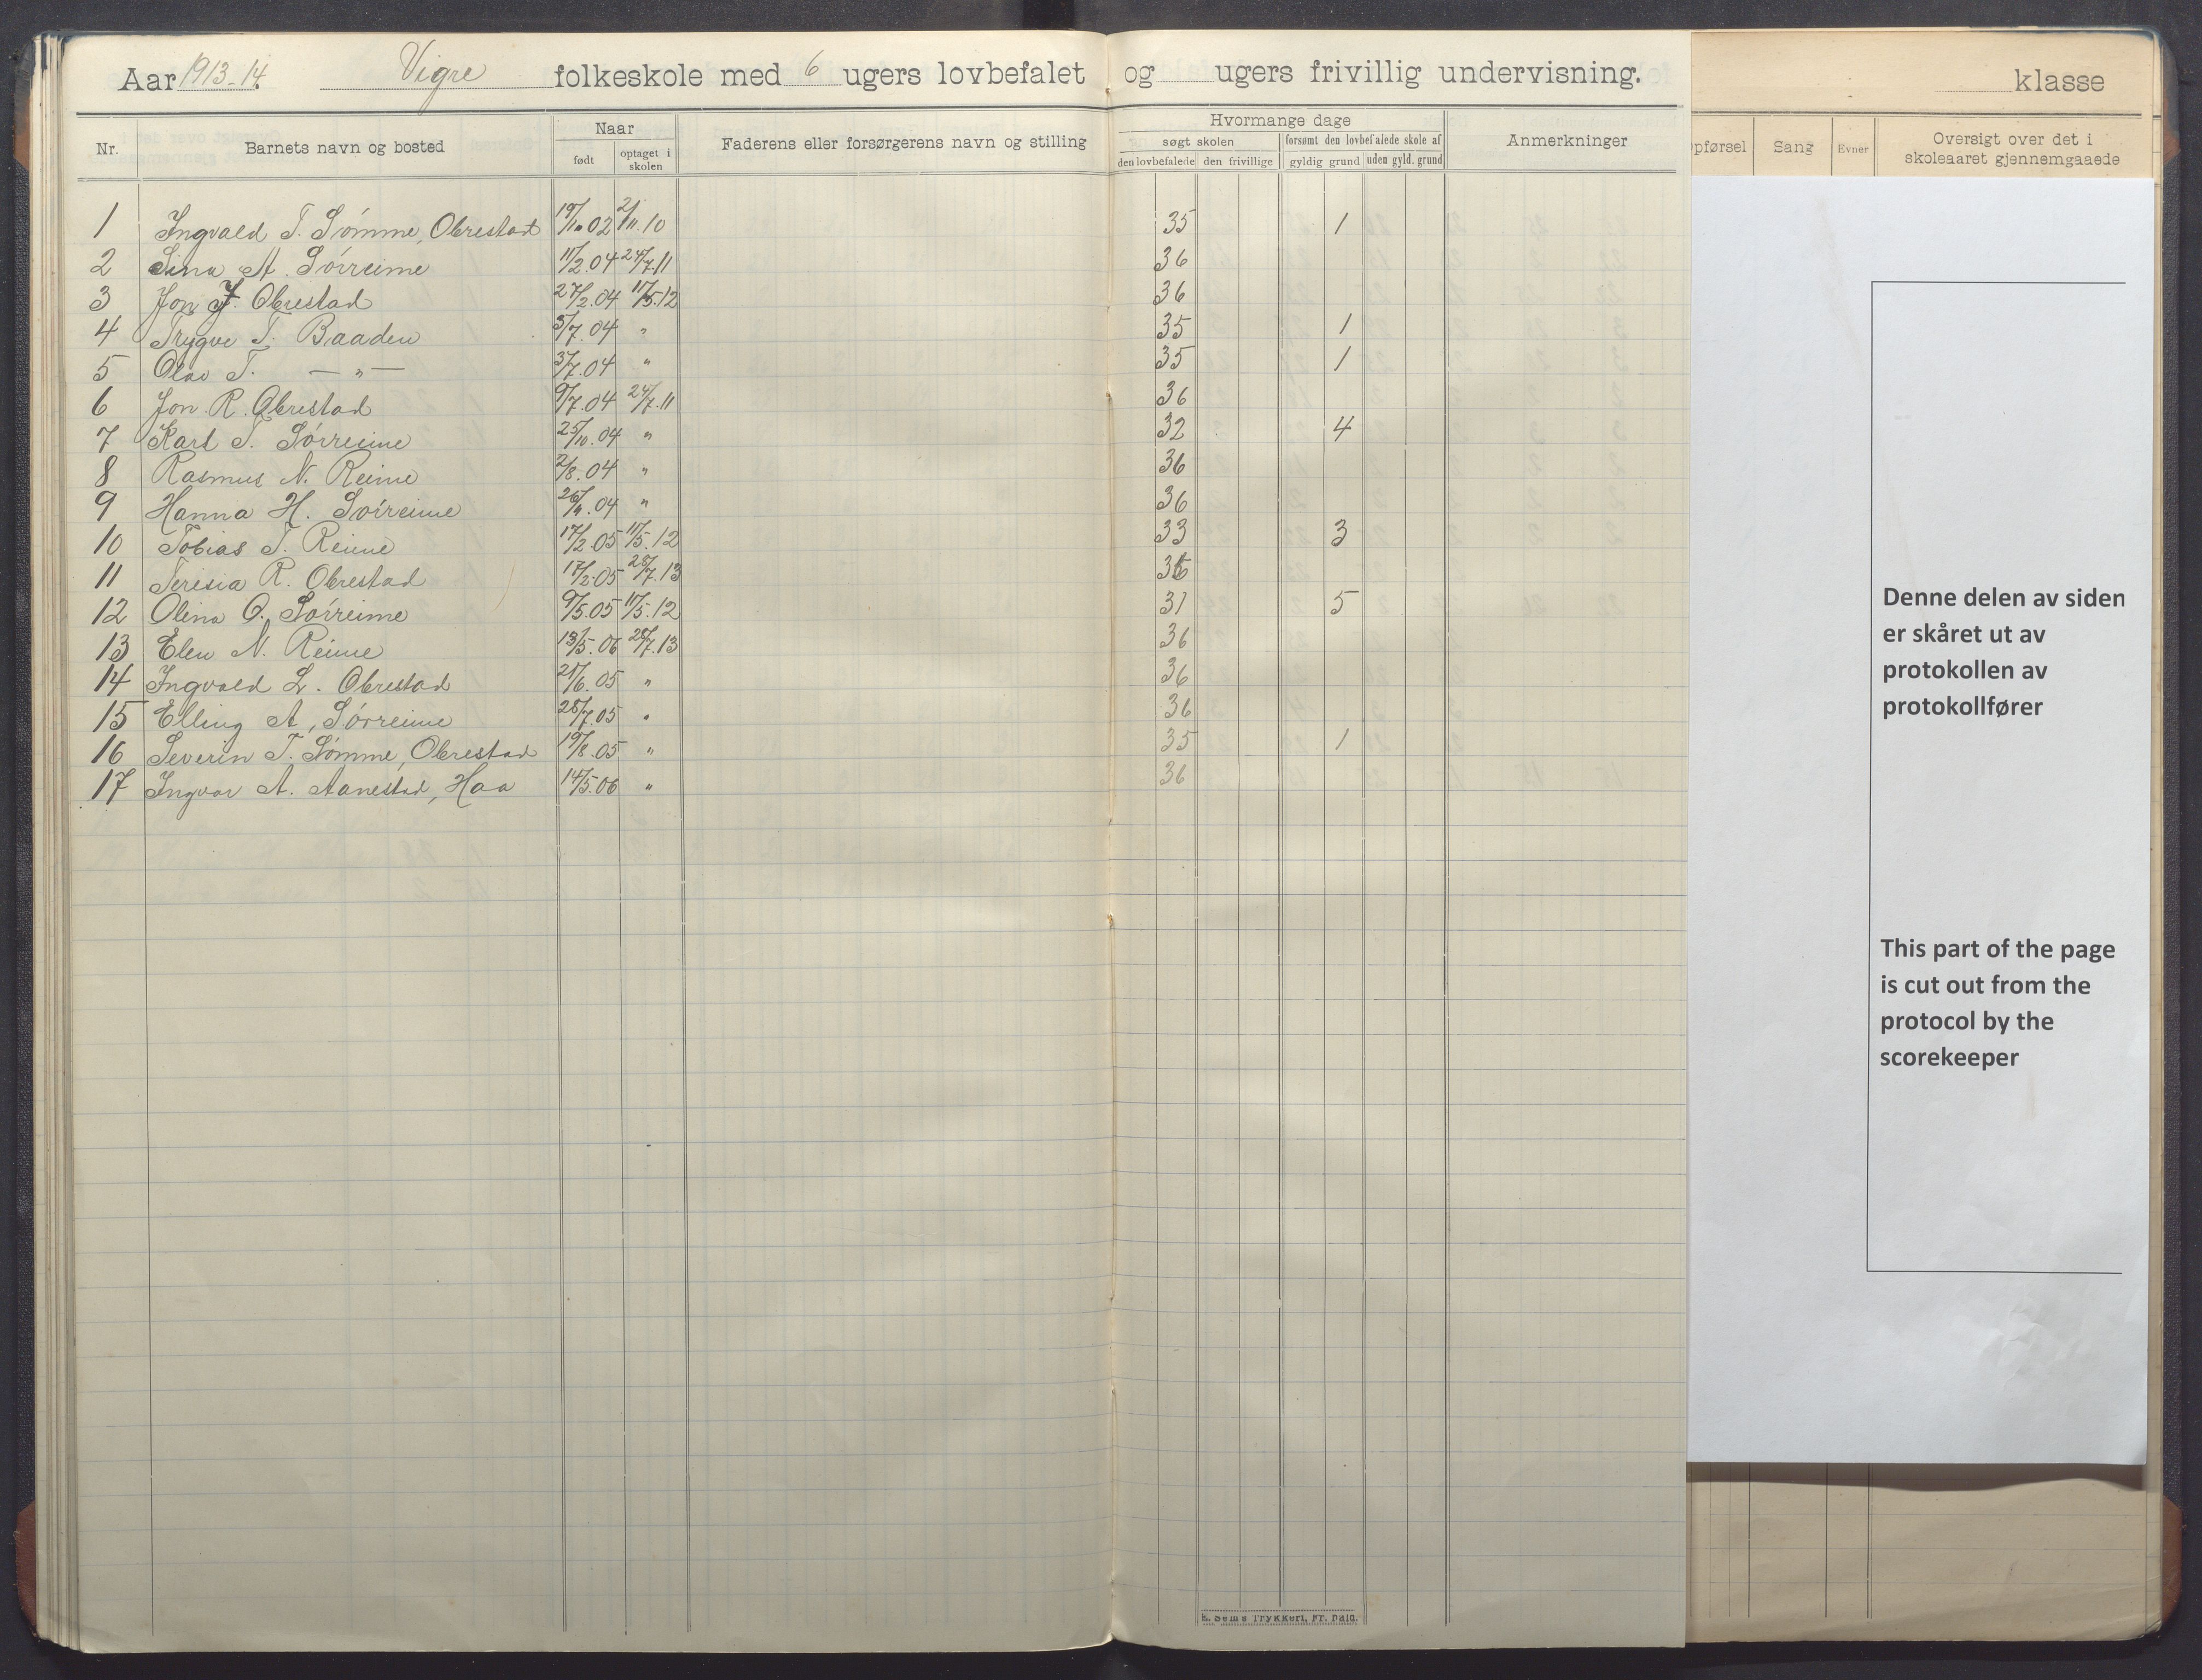 Aar 1913-14. Vigre folkeskole med 6 ugers lovbefalet og ugers frivillig undervisning.
klasse
Nr. Barnets navn og bosted Naar født optaget i skolen Faderens eller forsørgerens navn og stilling Hvormange dage søgt skolen den lovbefalede den frivillige forsømt den lovbefalede skole af gyldig grund uden gyld. grund Anmerkninger
pførsel Sang Evner Oversigt over det i skoleaaret gjennemgaaede
1 Ingvald T. Sömme, Obrestad 19/10 02 2/11.10 35 1
2 Sina A. Sörreime 11/2.04 24/7.11 36
3 Jon J. Obrestad 27/2.04 11/5.12 36
4 Trygve T. Baaden 5/7.04 " 35 1
5 Olav T. — " — 3/7.04 " 35 1
6 Jon. R. Obrestad 9/7.04 24/7.11 36
7 Karl T. Sörreime 25/10.04 " 32 4
8 Rasmus N. Reime 2/8.04 " 36
9 Hanna H. Sörreime .04 " 36
10 Tobias T. Reime 17/2.05 11/5.12 33 3
11 Teresia R. Obrestad 17/2.05 28/7.13 36
12 Olina O. Sörreime 9/5.05 11/5.12 31 5
13 Elen N. Reime 13/5.06 28/7.13 36
14 Ingvald L. Obrestad 21/6.05 " 36
15 Elling A, Sörreime 28/7.05 " 36
16 Severin T. Sömme, Obrestad 19/8.05 " 35 1
17 Ingvar A. Aanestad, Haa 14/5.06 " 36
Denne delen av siden
er skåret ut av
protokollen av
protokollfører
This part of the page
is cut out from the
protocol by the
scorekeeper